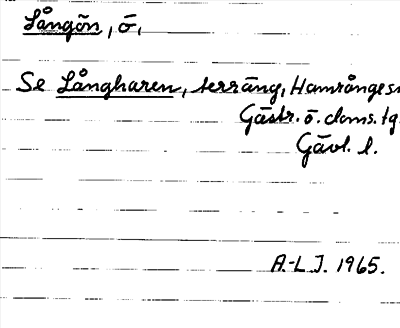 Långön, ö,
Se Långharen, terräng, Hamrånge sn
Gästr. ö. doms. tg.
Gävl. l.
A.-L J. 1965.